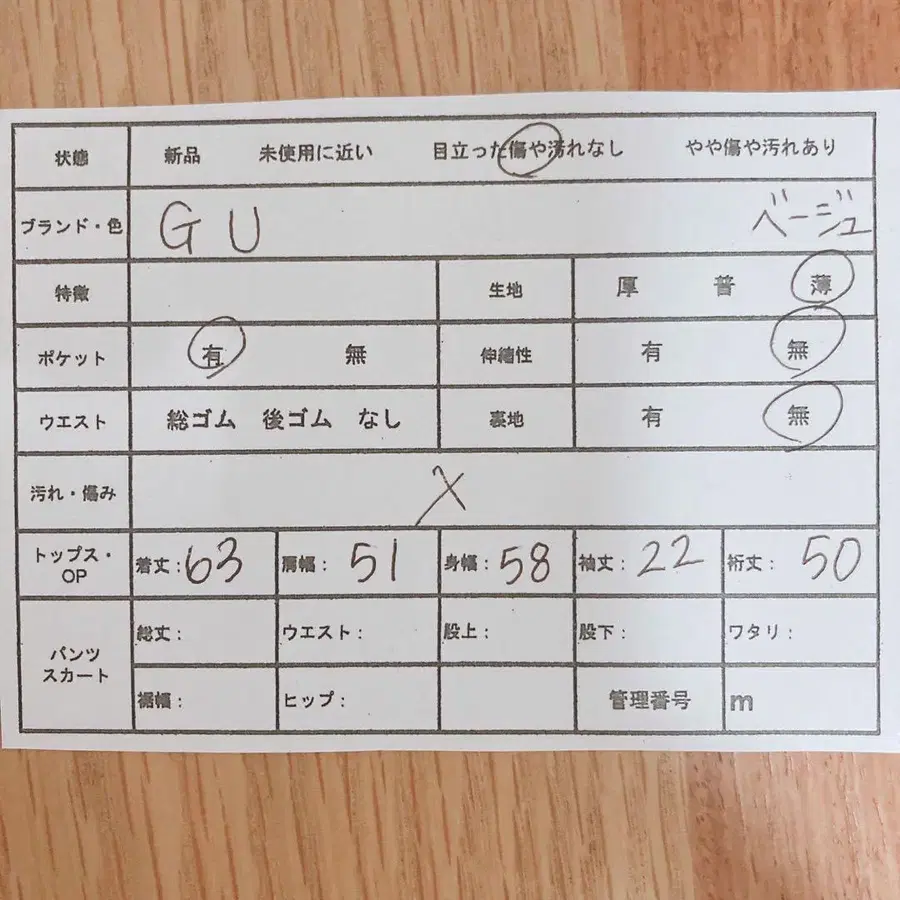 状態 新品 未使用に近い 目立った傷や汚れなし やや傷や汚れあり
ブランド・色 GU ベージュ
特徴 生地 厚 普 薄
ポケット 有 無 伸縮性 有 無
ウエスト 総ゴム 後ゴム なし 裏地 有 無
汚れ・傷み X
トップス・OP 着丈：63 肩幅：51 身幅：58 袖丈：22 裄丈：50
パンツ スカート 総丈： ウエスト： 股上： 股下： ワタリ：
裾幅： ヒップ： 管理番号 m